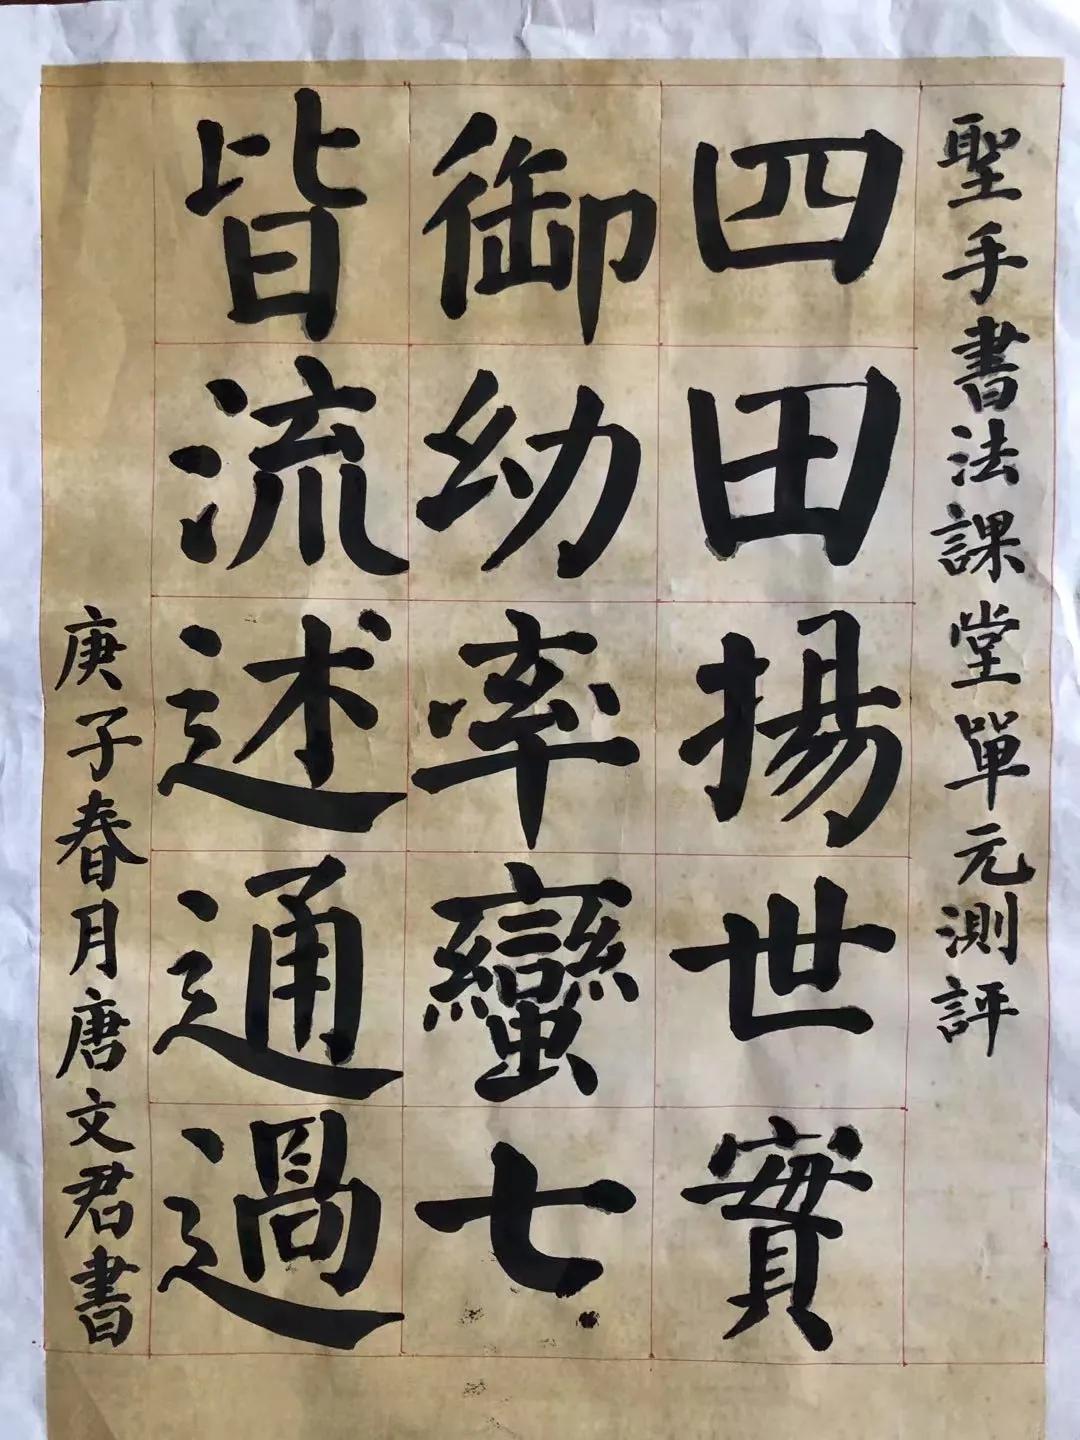 聖手書法課堂單元測評
四田揚世實
御幼率蠻七
皆流述通過
庚子春月唐文君書